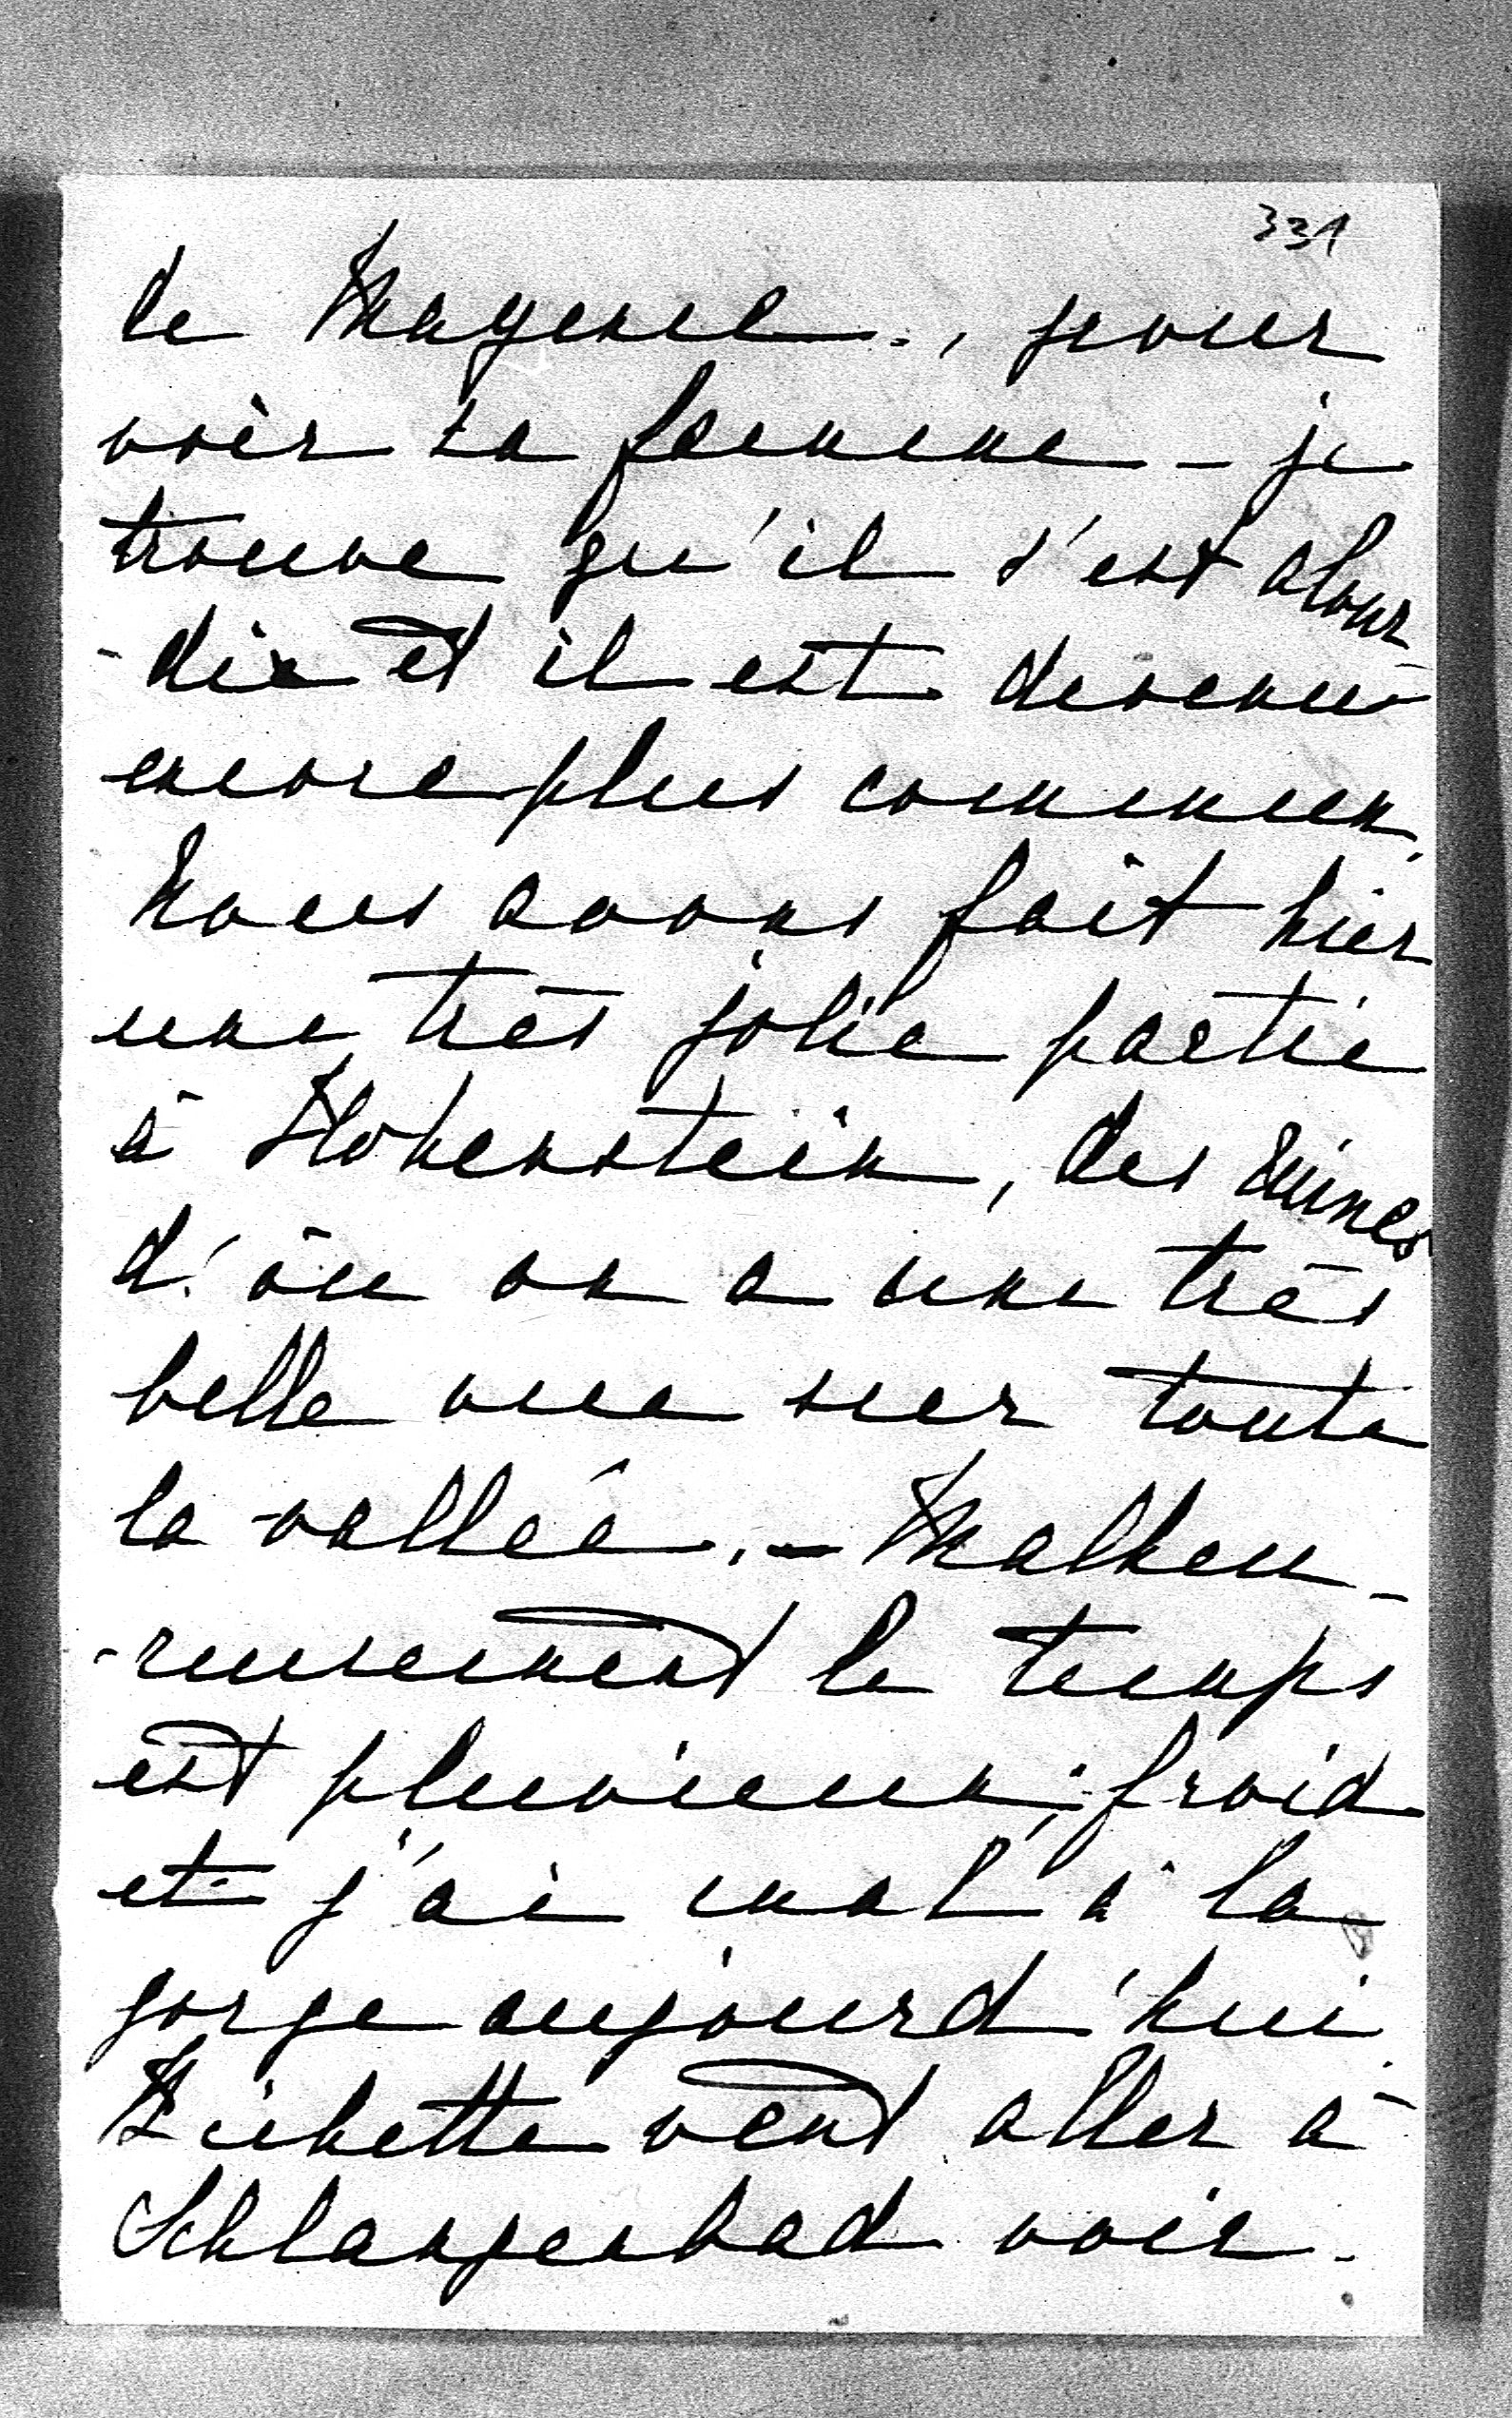 331
de Mayence., pour
voir sa femme - je
trouve qu'il s'est alour-
-die et il est devenu
encore plus commun.
Nous avons fait hier
une très jolie partie
à Hohenstein, des ruines
d'où on a une très
belle vue sur toute
la vallée. - Malheu-
-reusement le temps
est pluvieux; froid
et j'ai mal à la
gorge aujourd'hui.
veut aller à
Schlangenbad voir